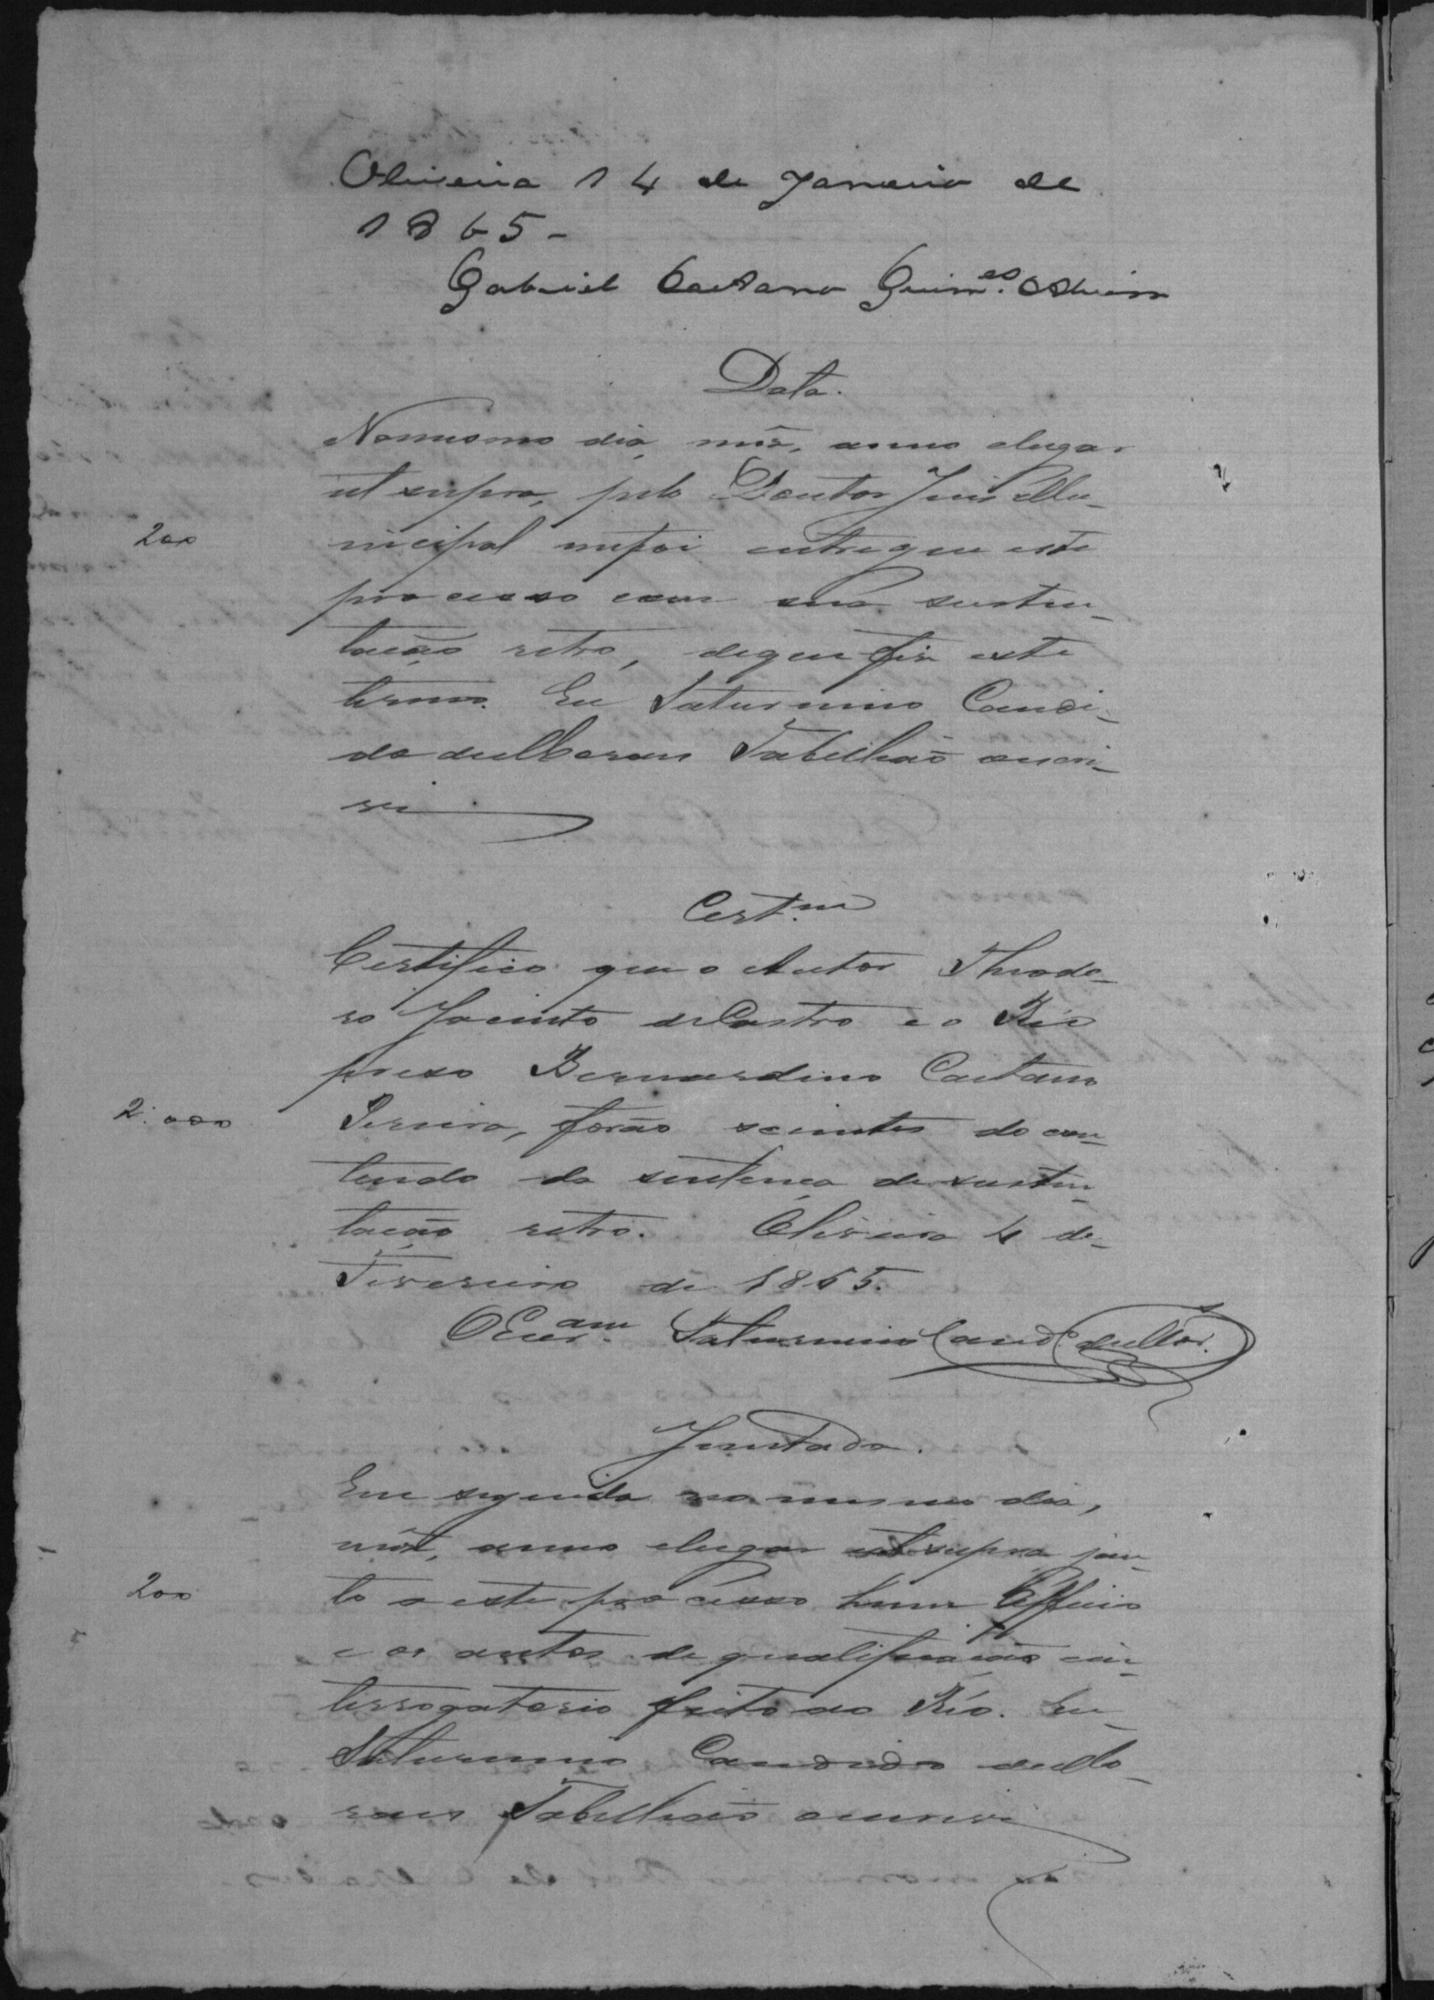 Oliveira 14 de Janeiro de
1865-
Gabriel Caetano Guim.es Alvim
Data.
Nomesmo dia, mês, anno elugar
ut supra, pelo Doutor Juis Mu-
200
nicipal mefoi entregue este
processo com sua susten-
tação retro, deque fis este
termo. Eu Saturnino Candi-
do deMoraes Tabellião escre-
vi
Cert.m
Certifico que o Autor Theodo-
ro Jacinto deCastro e o Réo
preso Bernardino Caetano
2.000
Pereira, forão scientes do con-
teudo da sentença desusten-
tação retro. Oliveira 4 de
Fevereiro de 1865.
OEscr.am Saturnino Cand.º deMor.
Juntada.
Em seguida no mesmo dia,
mês, anno elugar ut supra jun-
200
to a este processo hum Officio
e os autos de qualificação ein-
terrogatorio feito ao Réo. Eu
Saturnino Candido deMo-
raes Tabellião escrevi